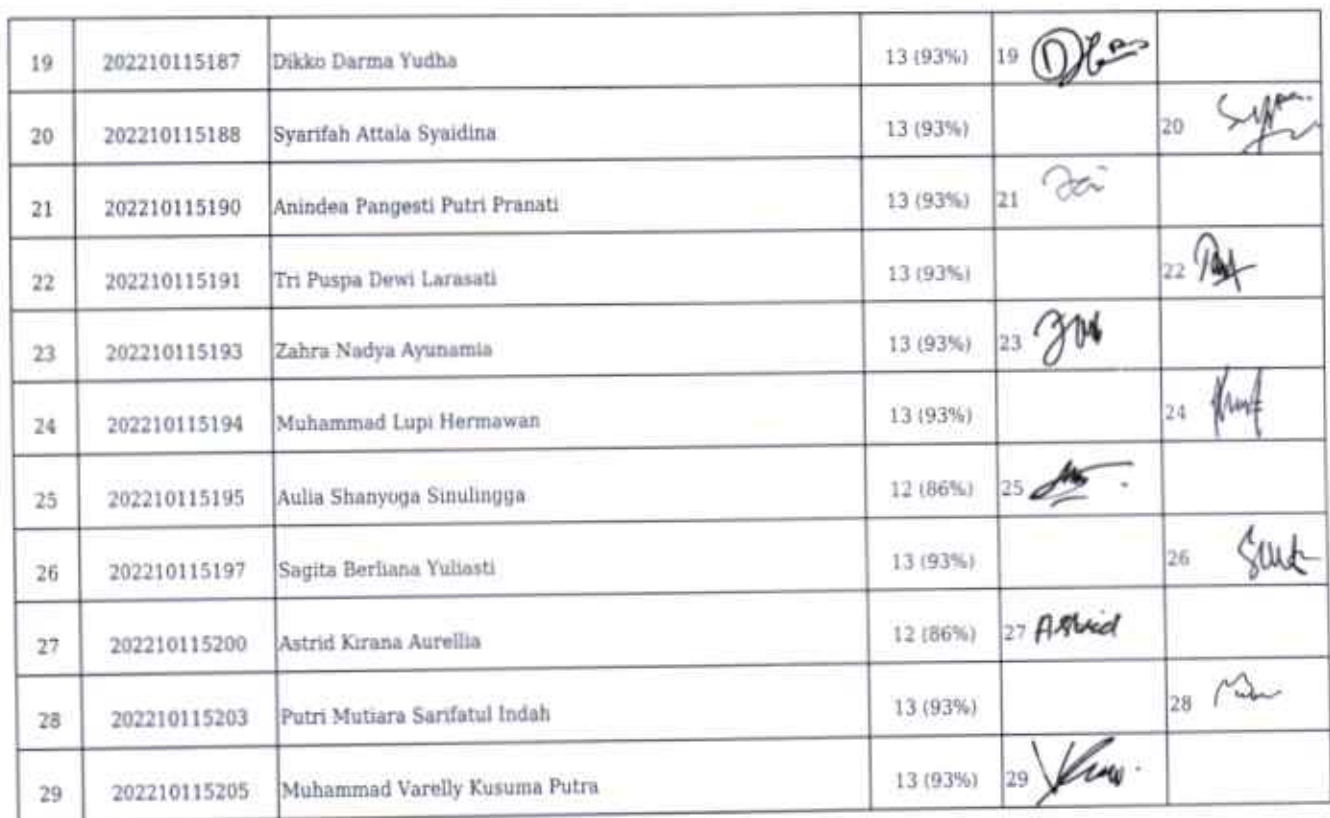 19 202210115187 Dikko Darma Yudha 13 (93%) 19
20 202210115188 Syarifah Attala Syaidina 13 (93%) 20
21 202210115190 Anindea Pangesti Putri Pranati 13 (93%) 21
22 202210115191 Tri Puspa Dewi Larasati 13 (93%) 22
23 202210115193 Zahra Nadya Ayunamia 13 (93%) 23
24 202210115194 Muhammad Lupi Hermawan 13 (93%) 24
25 202210115195 Aulia Shanyoga Sinulingga 12 (86%) 25
26 202210115197 Sagita Berliana Yuliasti 13 (93%) 26
27 202210115200 Astrid Kirana Aurellia 12 (86%) 27 Astrid
28 202210115203 Putri Mutiara Sarifatul Indah 13 (93%) 28
29 202210115205 Muhammad Varelly Kusuma Putra 13 (93%) 29